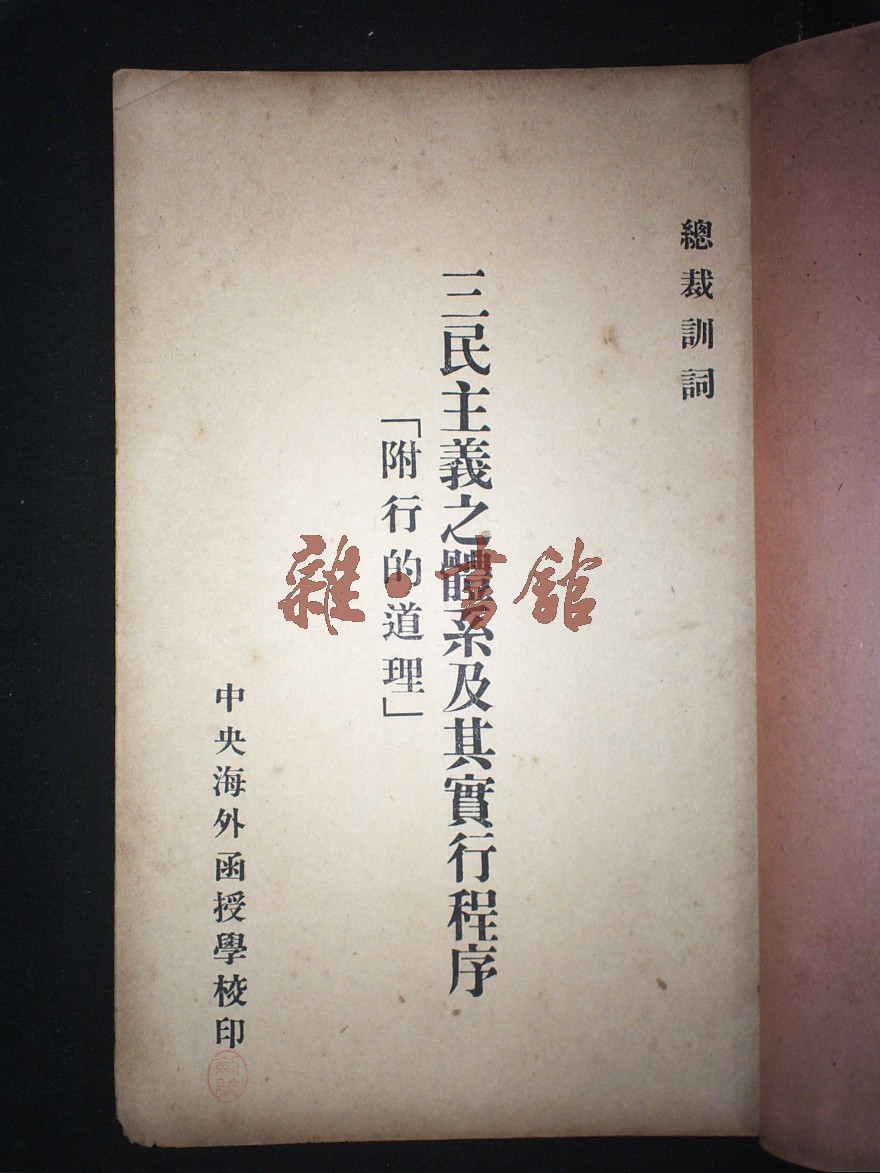 總裁訓詞
三民主義之體系及其實行程序
「附行的道理」
中央海外函授學校印
雜·書館